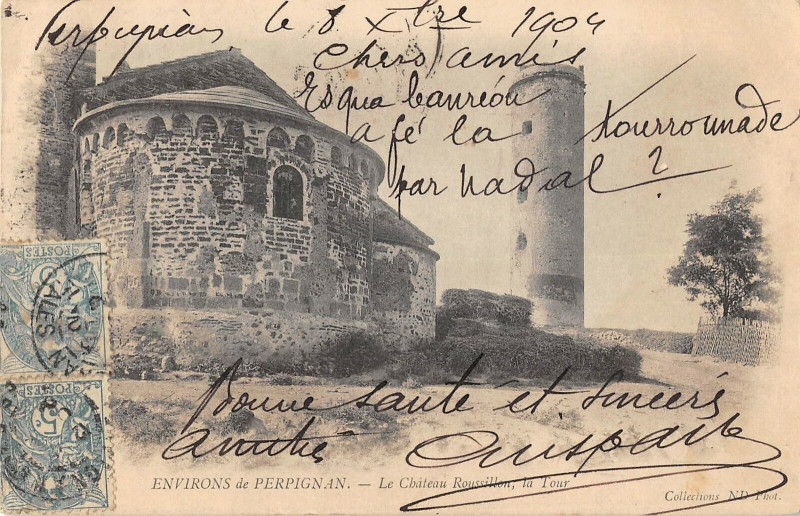 Perpignan le 8 Xbre 1904
Chers amis
Esqua baureou
a fé la Tourrounade
par nadal ?
Bonne santé et sincère
amitié
ENVIRONS de PERPIGNAN. — Le Château Roussillon, la Tour
Collections ND Phot.
POSTES
5c
POSTES
5c